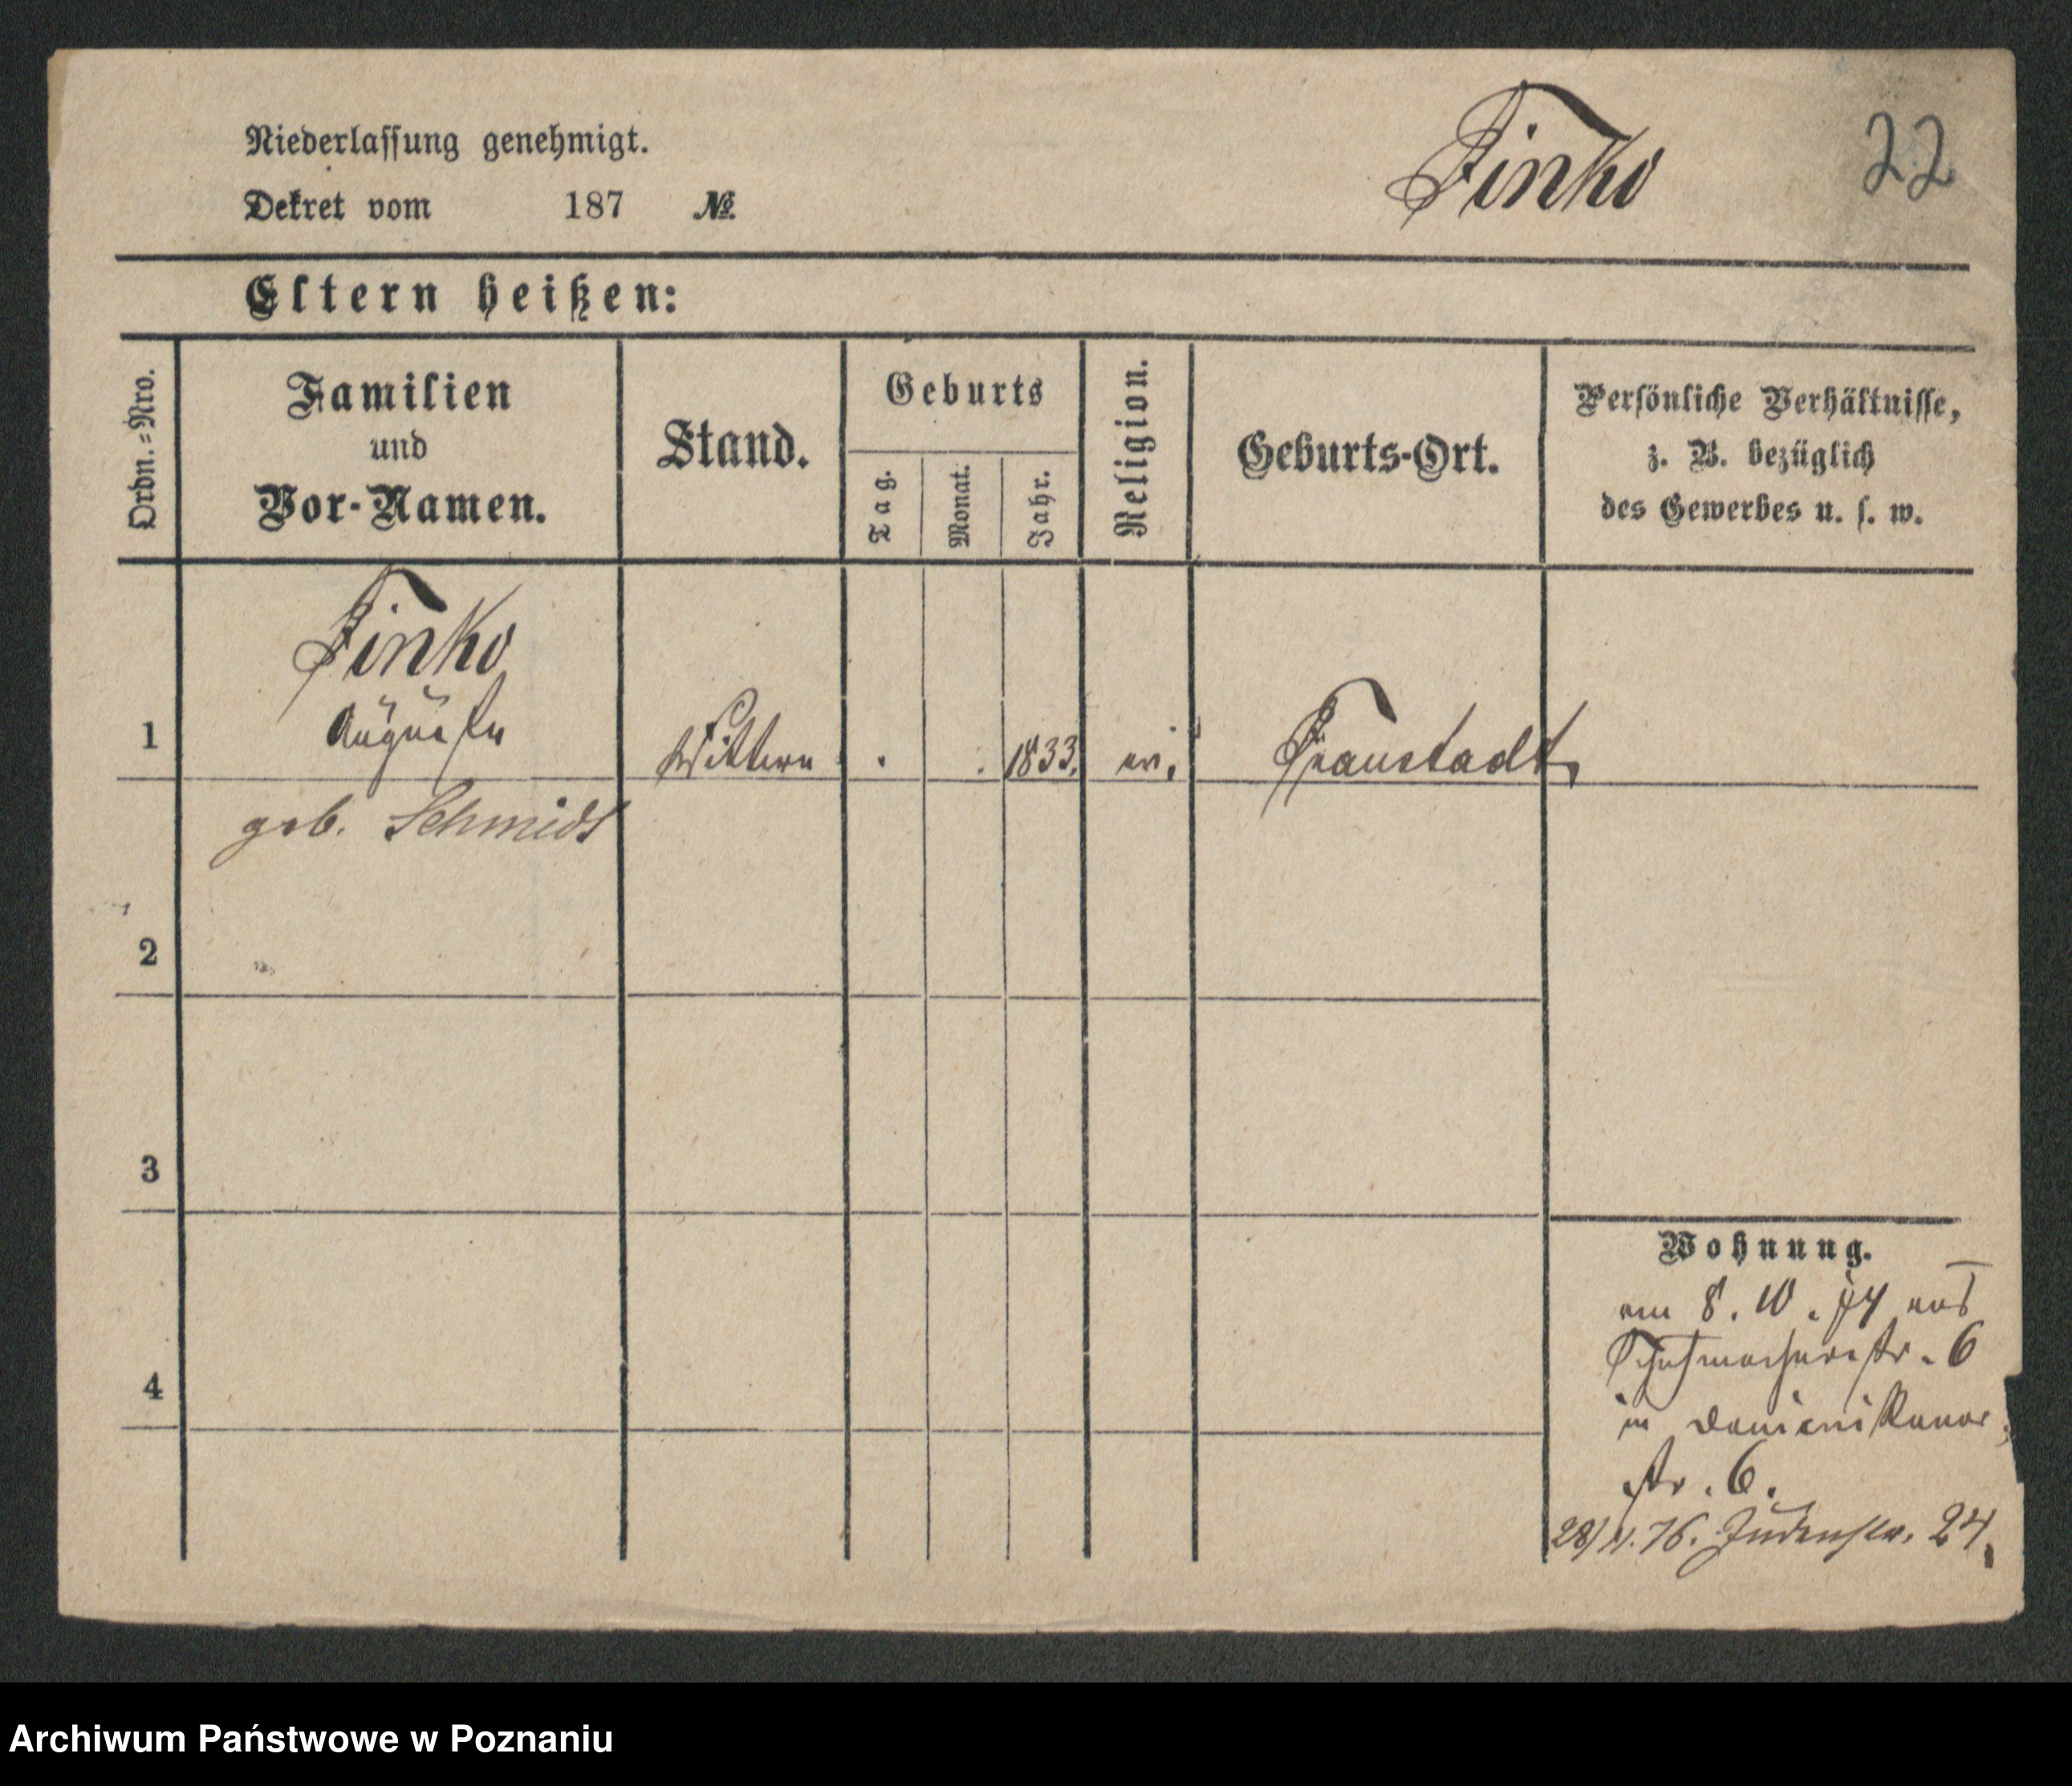 Niederlassung genehmigt.
Dekret vom 187 №
Finke
22
Eltern heißen:
Ordn.=Nro.
Familien
und
Vor-Namen.
Stand.
Geburts
Tag.
Monat.
Jahr.
Religion.
Geburts-Ort.
Persönliche Verhältnisse,
z. B. bezüglich
des Gewerbes u. s. w.
Finke
Auguste
1 Wittwe . . 1833. ev. Fraustadt
geb. Schmidt
2
3
4
Wohnung.
am 8. 10. 74 aus
Schuhmacherstr. 6
in Dominikaner
str. 6.
28/11. 76. Judenstr. 24.
Archiwum Państwowe w Poznaniu